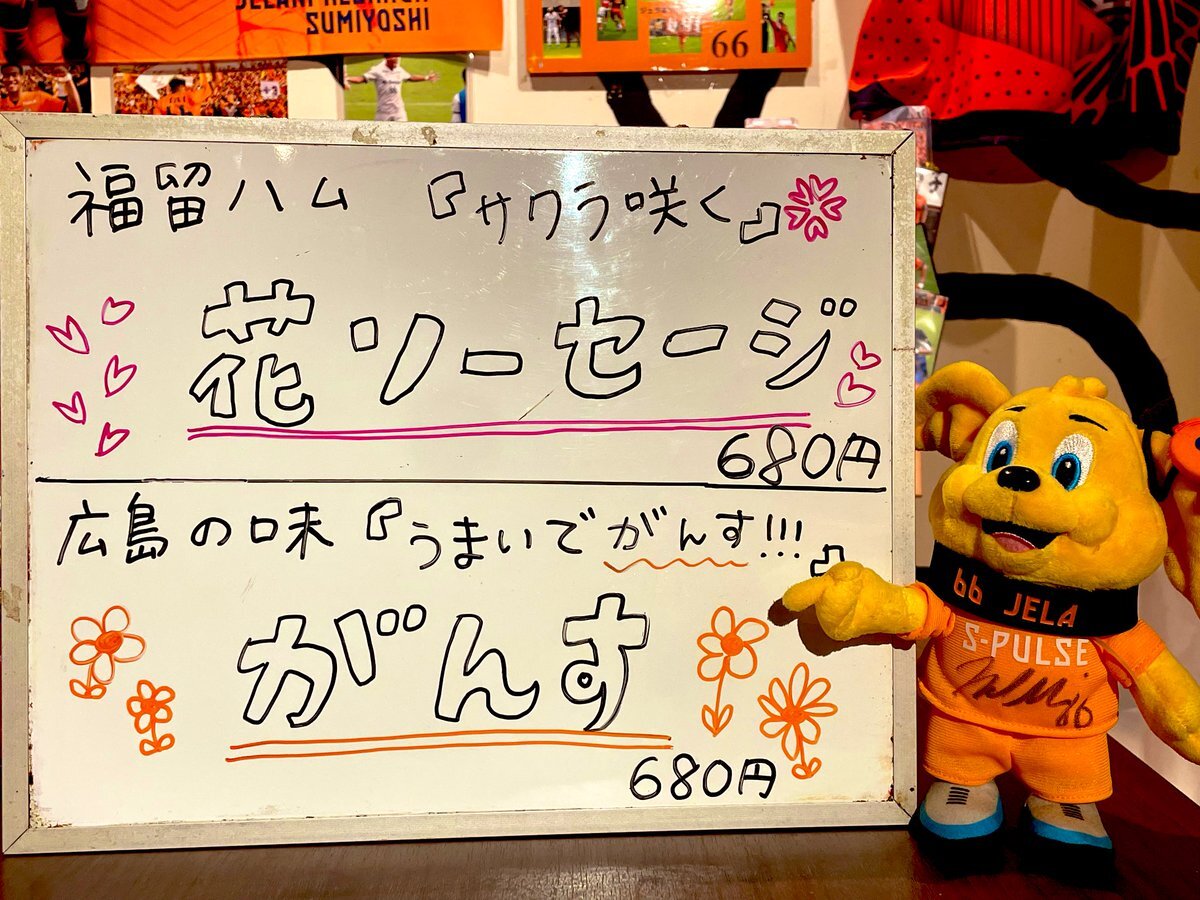 JELANI REINHA
SUMIYOSHI
66
福留ハム 『サクラ咲く』
花ソーセージ
680円
広島の味 『うまいでがんす!!!』
がんす
680円
66 JELA
S-PULSE